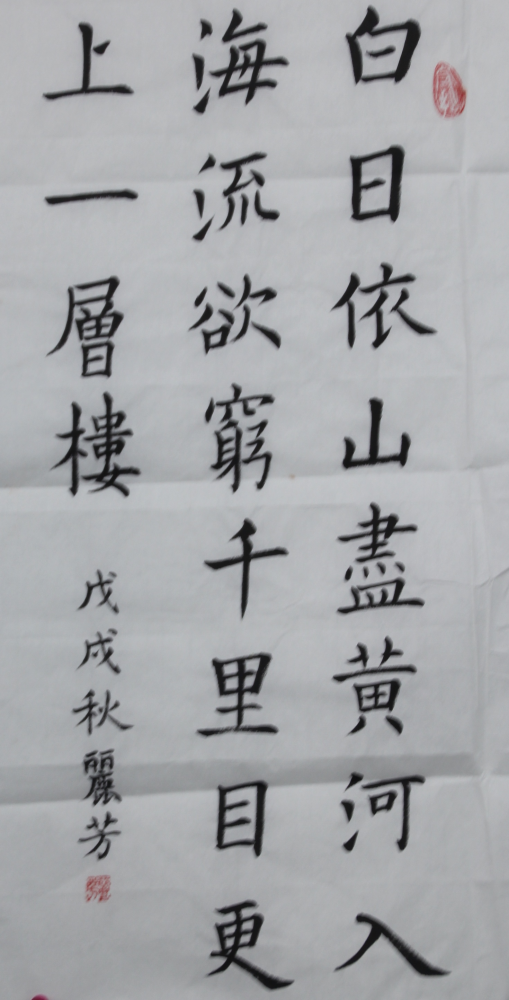 白日依山盡黄河入
海流欲窮千里目更
上一層樓
戊戌秋麗芳